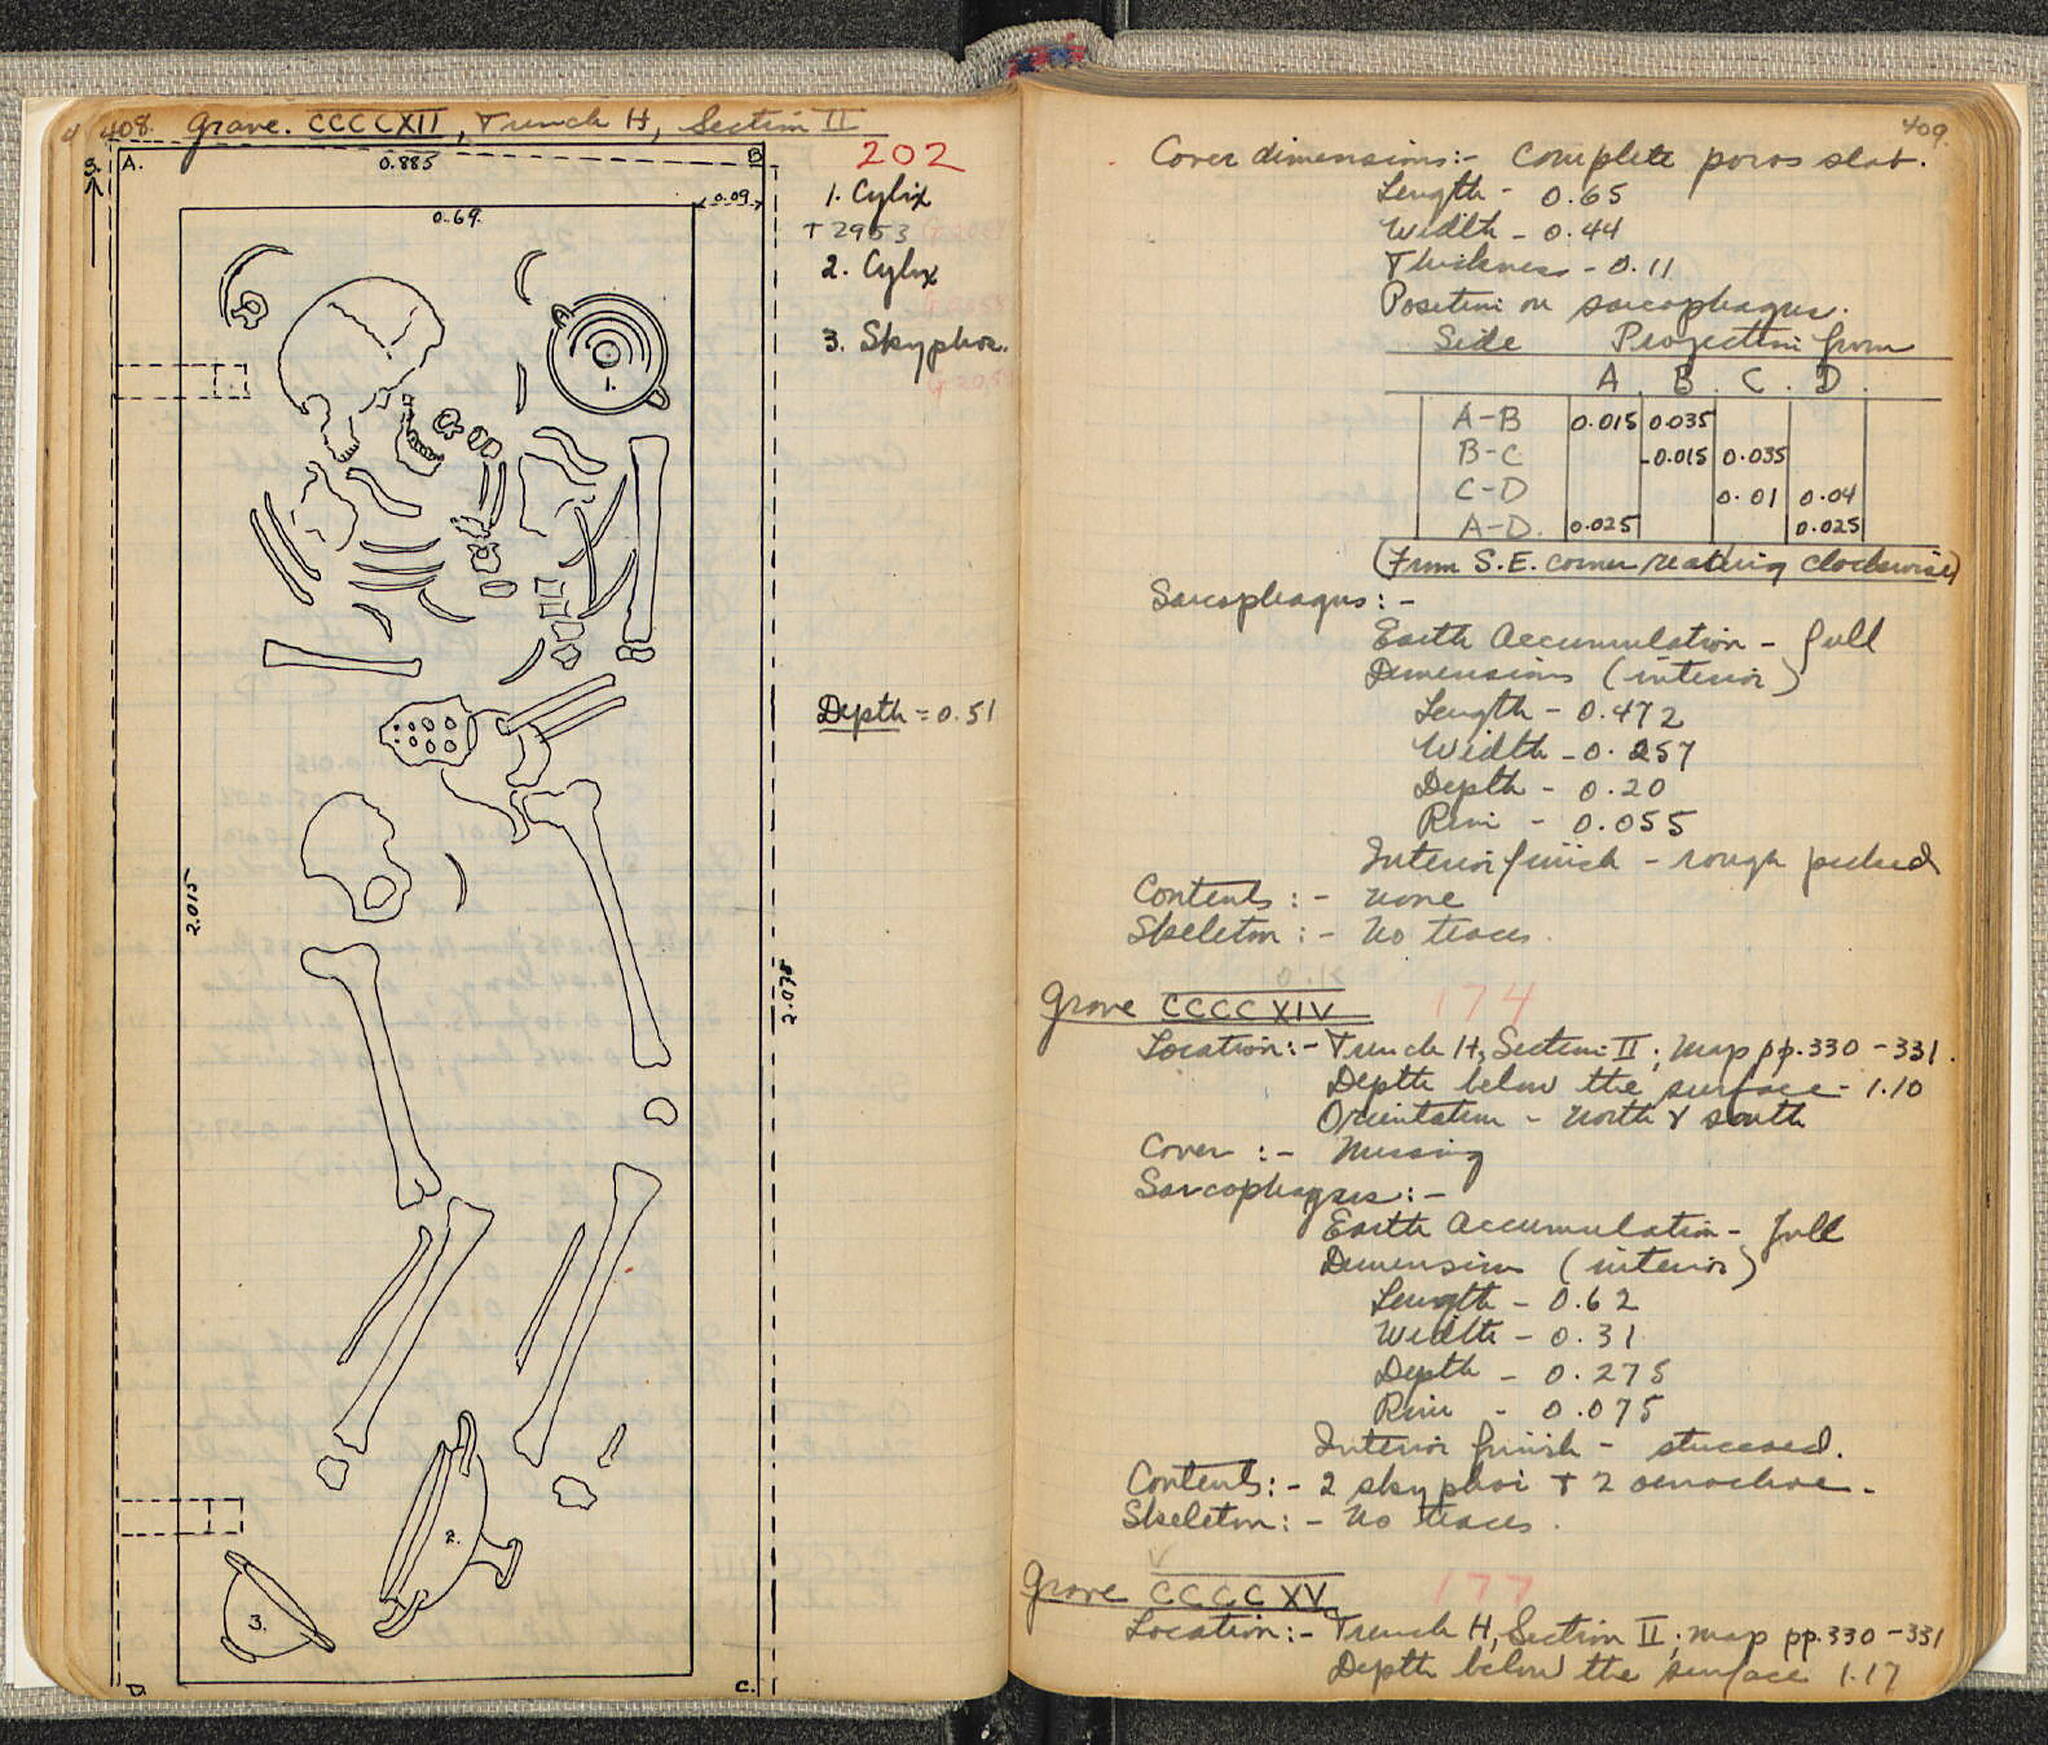 408. Grave. CCCCXII, Trench H, Section II
S. A. 0.885 B
202
0.09
0.69.
1. Cylix
T 2953
2. Cylix
3. Skyphos.
1.
Depth = 0.51
2.015
2.075
2.
3.
D. C.
409.
Cover dimensions:- Complete poros slab.
Length - 0.65
Width - 0.44
Thickness - 0.11
Position on sarcophagus.
Side Projection from
A. B. C. D.
A-B 0.015 0.035
B-C -0.015 0.035
C-D 0.01 0.04
A-D. 0.025 0.025
(From S.E. corner reading clockwise)
Sarcophagus:-
Earth Accumulation - full
Dimensions (interior)
Length - 0.472
Width - 0.257
Depth - 0.20
Rim - 0.055
Interior finish - rough picked
Contents:- none
Skeleton:- No traces.
Grave CCCCXIV 174
Location:- Trench H, Section II; Map pp. 330-331.
Depth below the surface - 1.10
Orientation - North & South
Cover:- Missing
Sarcophagus:-
Earth Accumulation - full
Dimension (interior)
Length - 0.62
Width - 0.31
Depth - 0.275
Rim - 0.075
Interior finish - stuccoed.
Contents:- 2 skyphoi + 2 oenochoe.
Skeleton:- No traces.
Grave CCCCXV 177
Location:- Trench H, Section II; map pp. 330-331
Depth below the surface 1.17